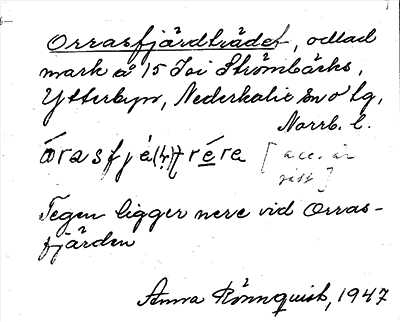 Orrasfjärdträdet, odlad
mark å 15 Joi Strömbäcks,
Ytterbyn, Nederkalix sn o tg,
Norrb. l.
órasfjä(ḷ)tréra [acc. är
giss]
Tegen ligger nere vid Orras-
fjärden
Anna Rönnquist, 1947